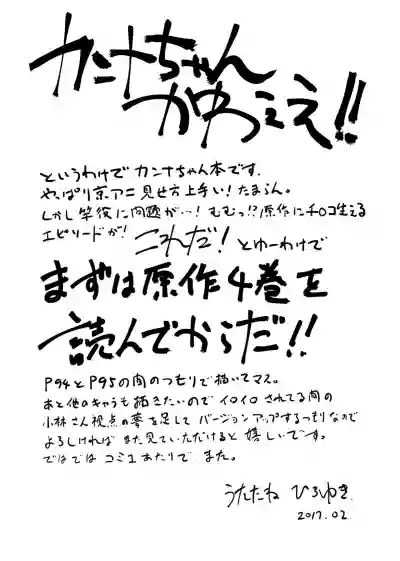 カンナちゃん
かわえぇ!!
というわけでカンナちゃん本です.
やっぱり京アニ見せ方上手い!たまらん。
しかし竿役に問題が…!むむっ!?原作にチロコ生える
エピソードが! これだ! とゆーわけで
まずは原作4巻を
読んでからだ!!
P94とP95の間のつもりで描いてマス。
あと他のキャラも描きたいので イロイロされてる間の
小林さん視点の夢を足して バージョンアップするつもりなので
よろしければ また見ていただけると 嬉しいです。
ではでは コミ1あたりで また。
うたたね ひろゆき.
2017.02.